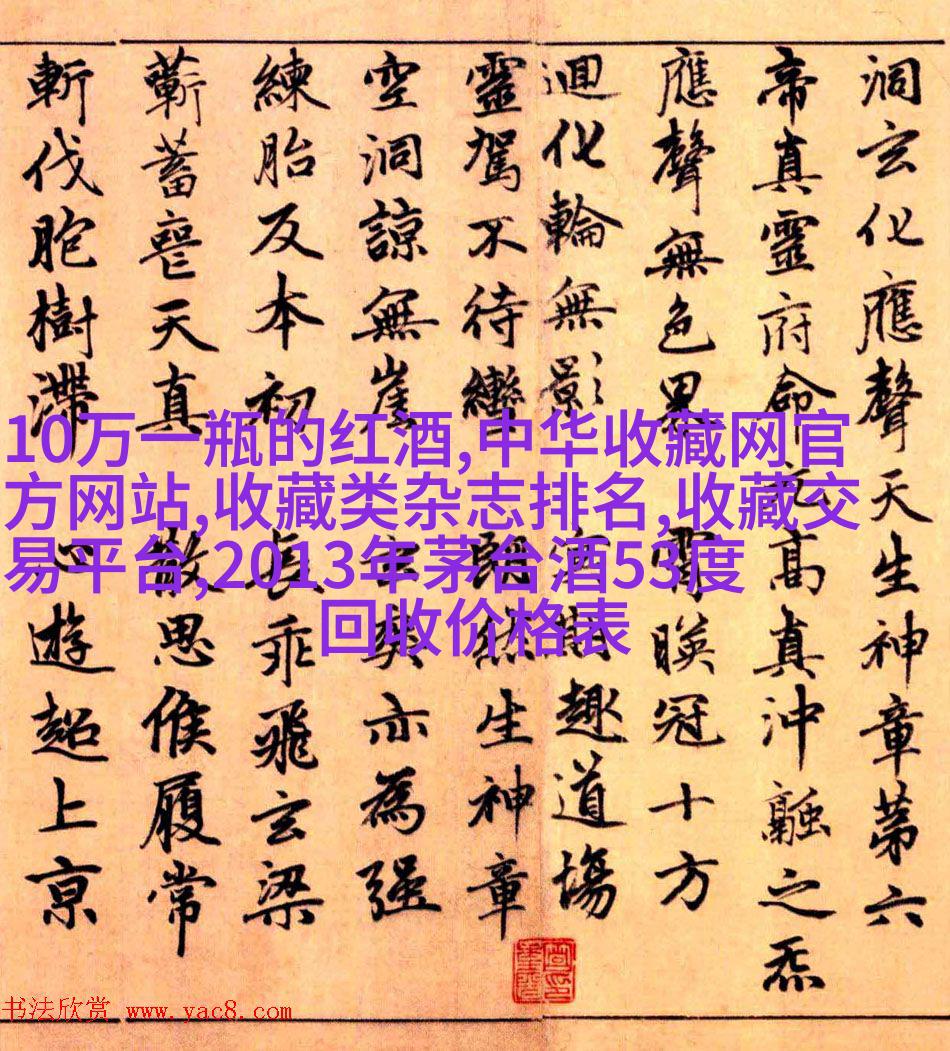 洞玄化應聲天生神章第六
帝真靈府命元高真沖融之炁
應聲無色界霄映冠十方
迴化輪無影趣道場
靈駕不待轡朗然生神章
空洞諒無崖玄爽亦為強
練胎反本初長乖飛玄梁
蘄蓄喪天真散思候履常
斬伐胞樹滯心遊超上京
10万一瓶的红酒,中华收藏网官
方网站,收藏类杂志排名,收藏交
易平台,2013年茅台酒53度
回收价格表
书法欣赏 www.yac8.com